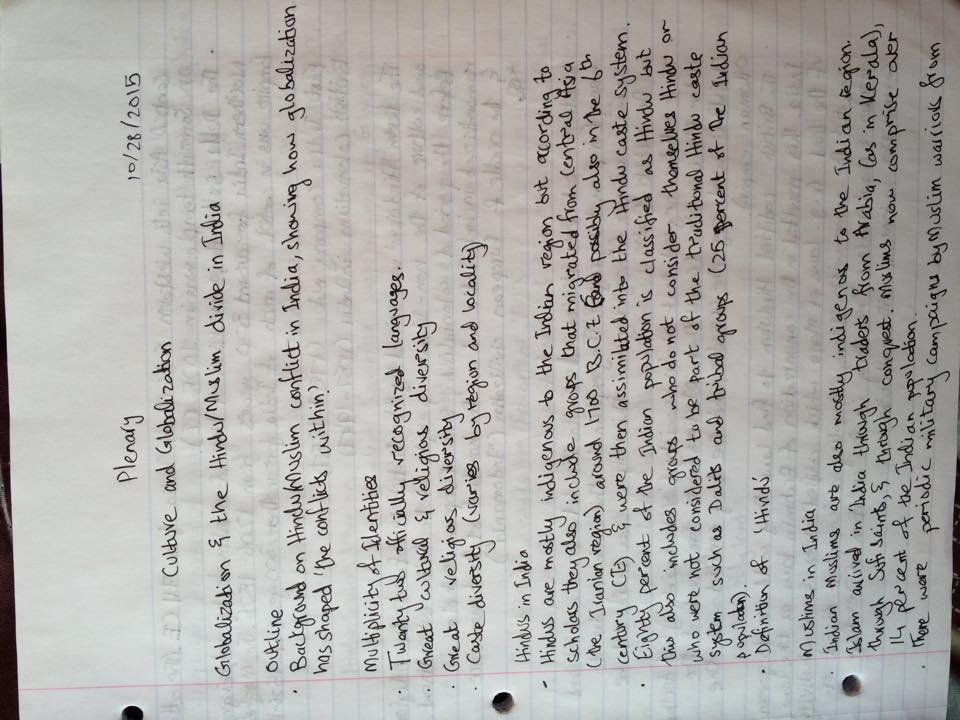 Plenary
10/28/2015
Culture and Globalization
Globalization & the Hindu/Muslim divide in India
Outline
· Background on Hindu/Muslim conflict in India, showing how globalization
has shaped 'the conflicts within'
Multiplicity of Identities
· Twenty two officially recognized languages.
· Great cultural & religious diversity
· Great religious diversity
· Caste diversity (varies by region and locality)
Hindus in India
· Hindus are mostly indigenous to the Indian region but according to
scholars they also include groups that migrated from Central Asia
(the Iranian region) around 1700 B.C.E (and possibly also in the 6th
century CE) & were then assimilated into the Hindu caste system.
· Eighty percent of the Indian population is classified as Hindu but
this also includes groups who do not consider themselves Hindu or
who were not considered to be part of the traditional Hindu caste
system such as Dalits and tribal groups (25 percent of the Indian
population).
· Definition of 'Hindu'
Muslims in India
· Indian Muslims are also mostly indigenous to the Indian region.
Islam arrived in India through traders from Arabia, (as in Kerala),
through Sufi saints, & through conquest. Muslims now comprise over
14 percent of the Indian population.
· There were periodic military campaigns by Muslim warriors from